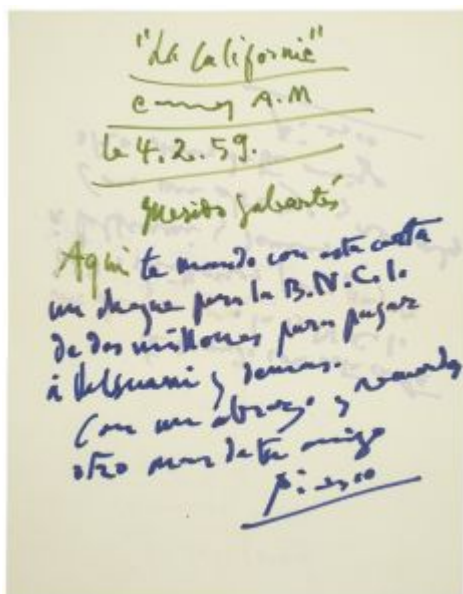 "La Californie"
Cannes A.M
le 4.2.59.
querido Sabartés
Aquí te mando con esta carta
un cheque para la B.N.C.I.
de dos millones para pagar
a y demas.
Con un abrazo y recuerdos
otro mas de tu amigo
Picasso